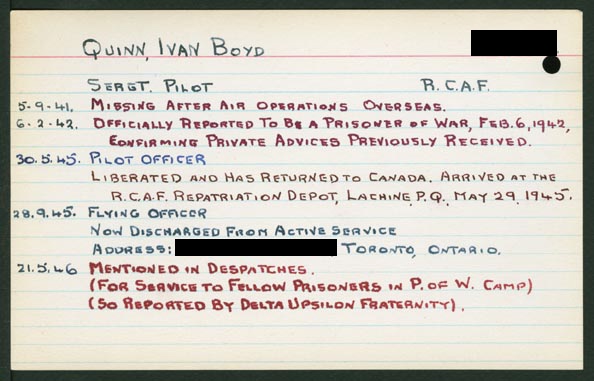 QUINN, IVAN BOYD
SERGT. PILOT R.C.A.F.
5-9-41. MISSING AFTER AIR OPERATIONS OVERSEAS.
6-2-42. OFFICIALLY REPORTED TO BE A PRISONER OF WAR, FEB. 6, 1942,
CONFIRMING PRIVATE ADVICES PREVIOUSLY RECEIVED.
30.5.45. PILOT OFFICER
LIBERATED AND HAS RETURNED TO CANADA. ARRIVED AT THE
R.C.A.F. REPATRIATION DEPOT, LACHINE, P.Q. MAY 29, 1945.
28.9.45. FLYING OFFICER
NOW DISCHARGED FROM ACTIVE SERVICE
ADDRESS: TORONTO, ONTARIO.
21.5.46 MENTIONED IN DESPATCHES.
(FOR SERVICE TO FELLOW PRISONERS IN P. OF W. CAMP)
(SO REPORTED BY DELTA UPSILON FRATERNITY).